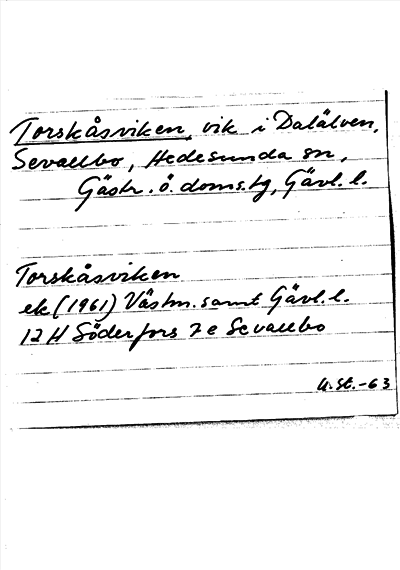 Torskåsviken, vik i Dalälven,
Sevallbo, Hedesunda sn,
Gästr. ö. doms.tg, Gävl. l.
Torskåsviken
ek (1961) Västm. samt Gävl. l.
12 H Söderfors 7 e Sevallbo
U.St.-63